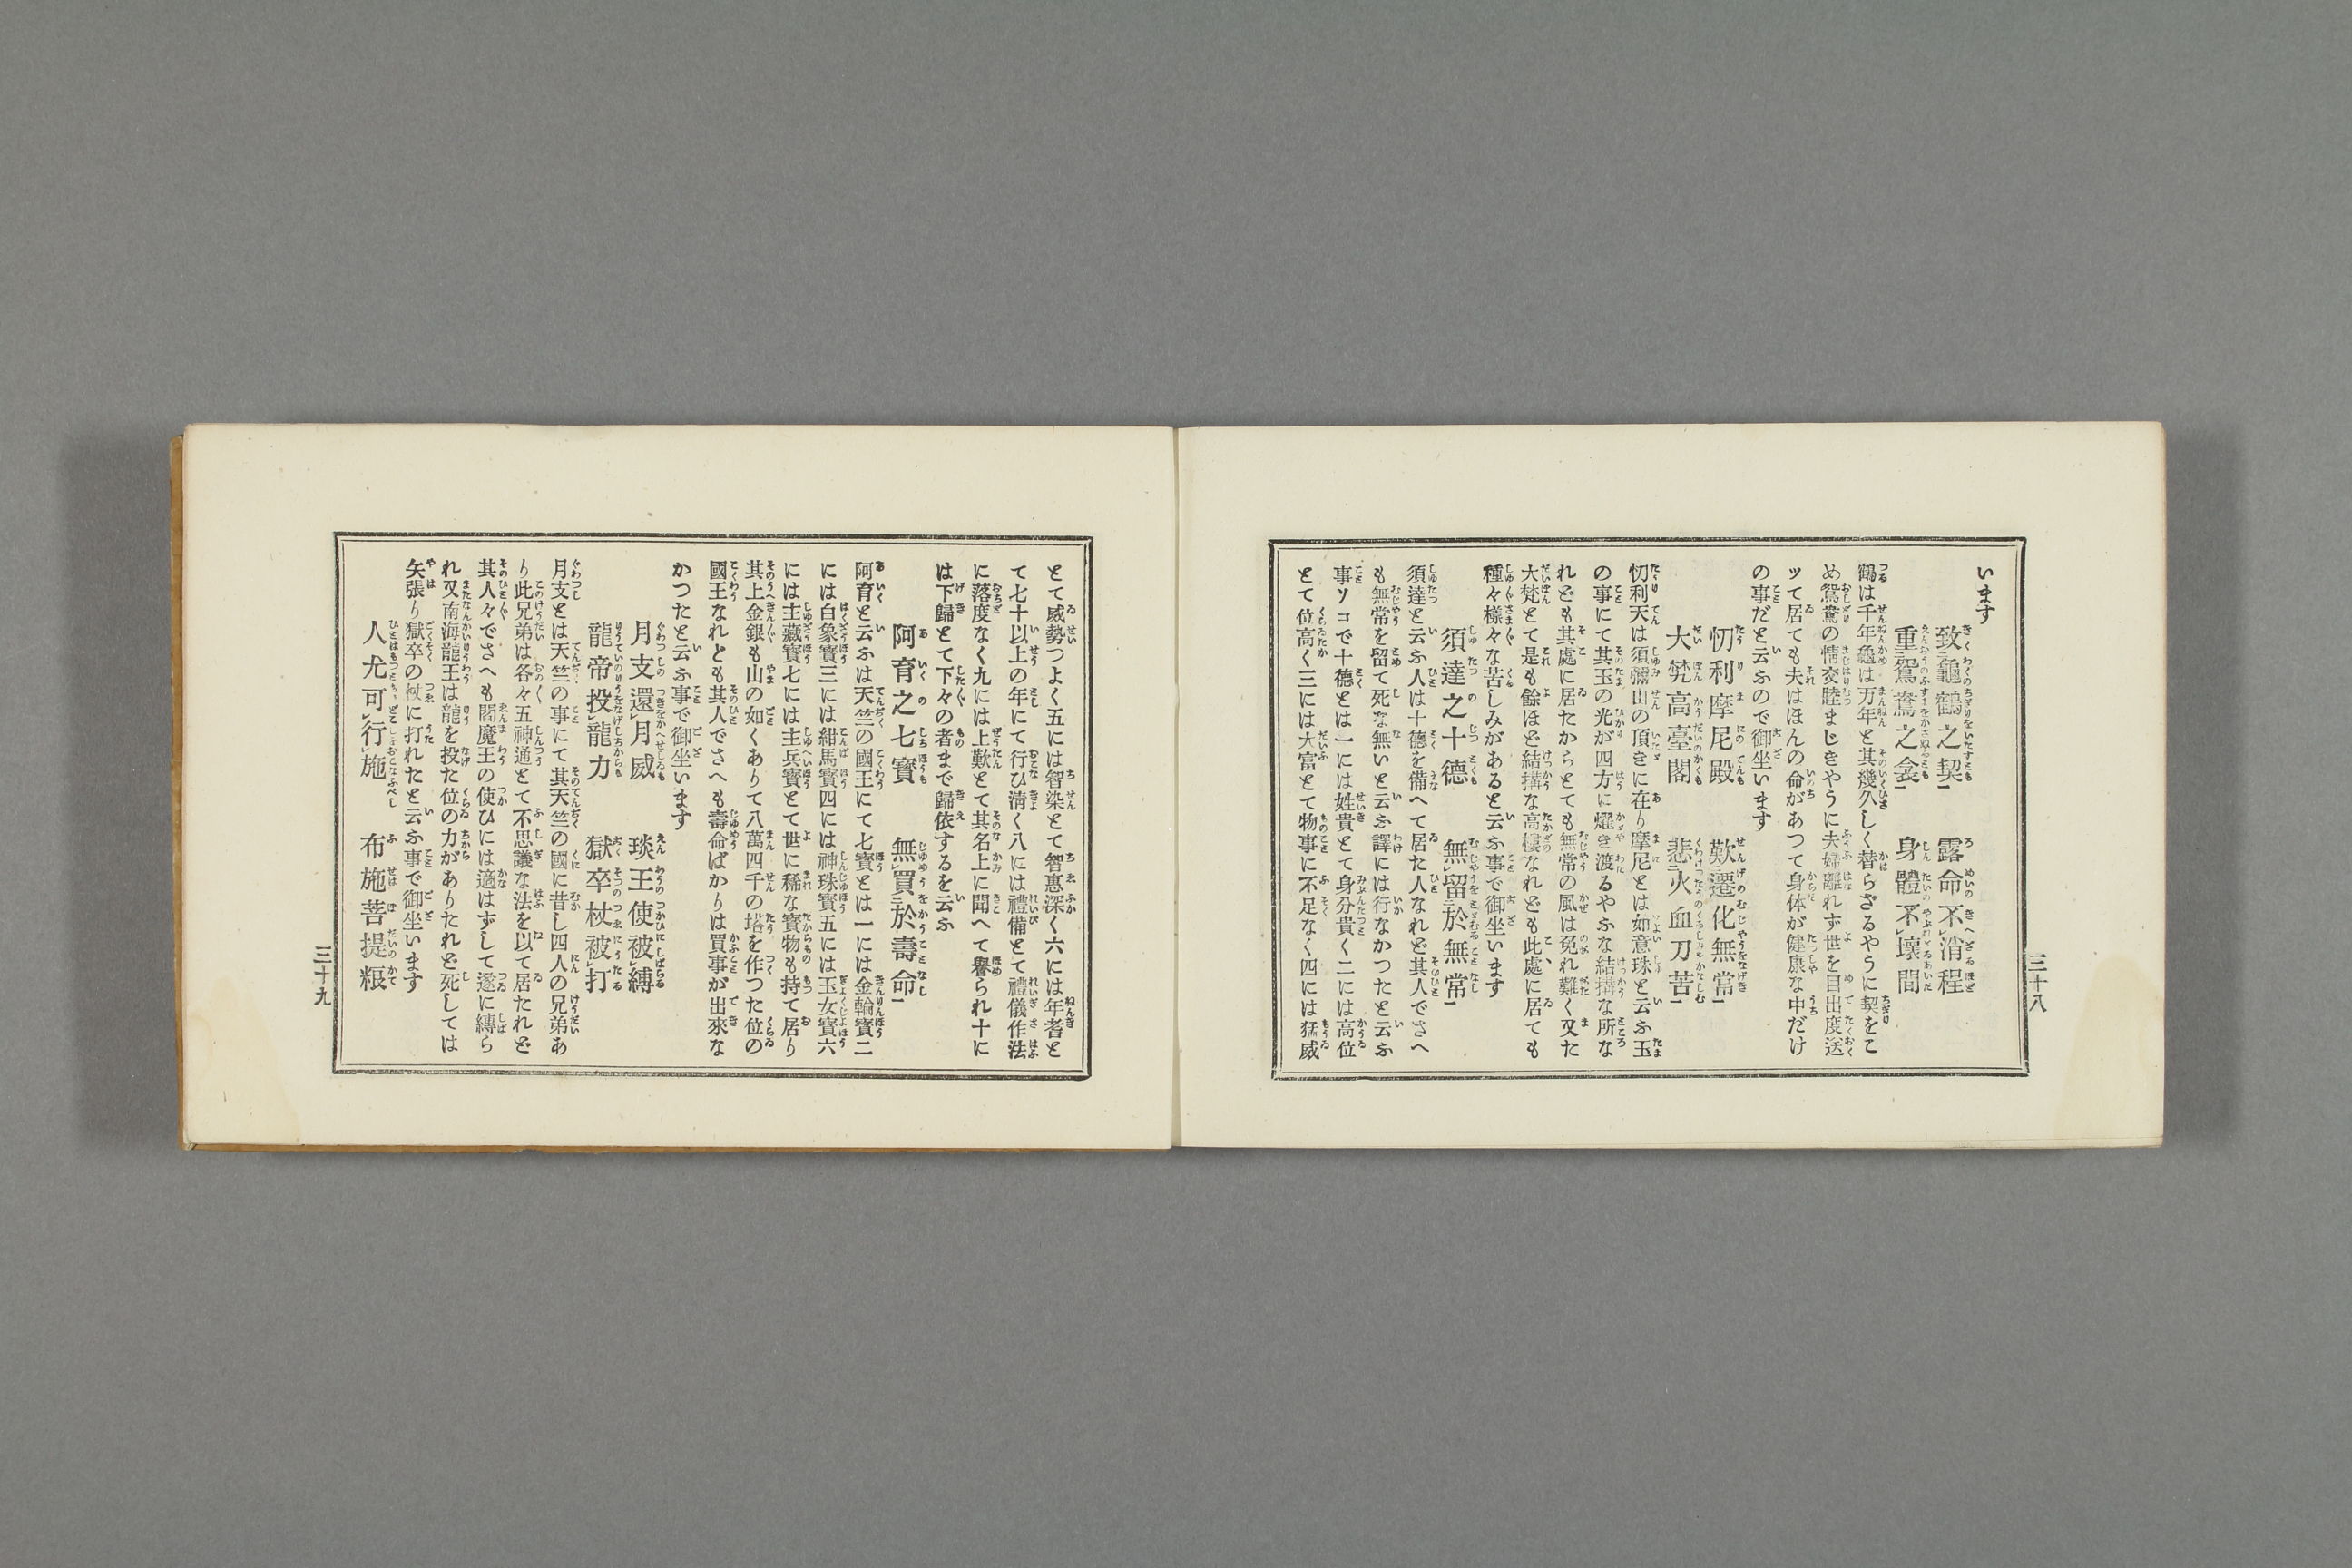 三十八
います
致龜鶴之契　露命不消程
重鴛鴦之衾　身體不壞間
鶴は千年龜は万年と其幾久しく替らざるやうに契をこ
め鴛鴦の情交睦まじきやうに夫婦離れず世を目出度送
ッて居ても夫はほんの命があつて身体が健康な中だけ
の事だと云ふので御坐います
忉利摩尼殿　歎遷化無常
大梵高臺閣　悲火血刀苦
忉利天は須彌山の頂きに在り摩尼とは如意珠と云ふ玉
の事にて其玉の光が四方に燿き渡るやふな結搆な所な
れども其處に居たからとても無常の風は免れ難く又た
大梵とて是も餘ほど結搆な高樓なれども此處に居ても
種々樣々な苦しみがあると云ふ事で御坐います
須達之十德　無留於無常
須達と云ふ人は十德を備へて居た人なれど其人でさへ
も無常を留て死な無いと云ふ譯には行なかつたと云ふ
事ソコで十德とは一には姓貴とて身分貴く二には高位
とて位高く三には大富とて物事に不足なく四には猛威
とて威勢つよく五には智染とて智惠深く六には年耆と
て七十以上の年にて行ひ清く八には禮備とて禮儀作法
に落度なく九には上歎とて其名上に聞へて譽られ十に
は下歸とて下々の者まで歸依するを云ふ
阿育之七寶　無買於壽命
阿育と云ふは天竺の國王にて七寶とは一には金輪寶二
には白象寶三には紺馬寶四には神珠寶五には玉女寶六
には主藏寶七には主兵寶とて世に稀な寶物も持て居り
其上金銀も山の如くありて八萬四千の塔を作つた位の
國王なれとも其人でさへも壽命ばかりは買事が出來な
かつたと云ふ事で御坐います
月支還月威　琰王使被縛
龍帝投龍力　獄卒杖被打
月支とは天竺の事にて其天竺の國に昔し四人の兄弟あ
り此兄弟は各々五神通とて不思議な法を以て居たれど
其人々でさへも閻魔王の使ひには適はずして遂に縛ら
れ又南海龍王は龍を投た位の力がありたれど死しては
矢張り獄卒の杖に打れたと云ふ事で御坐います
人尤可行施　布施菩提粮
三十九